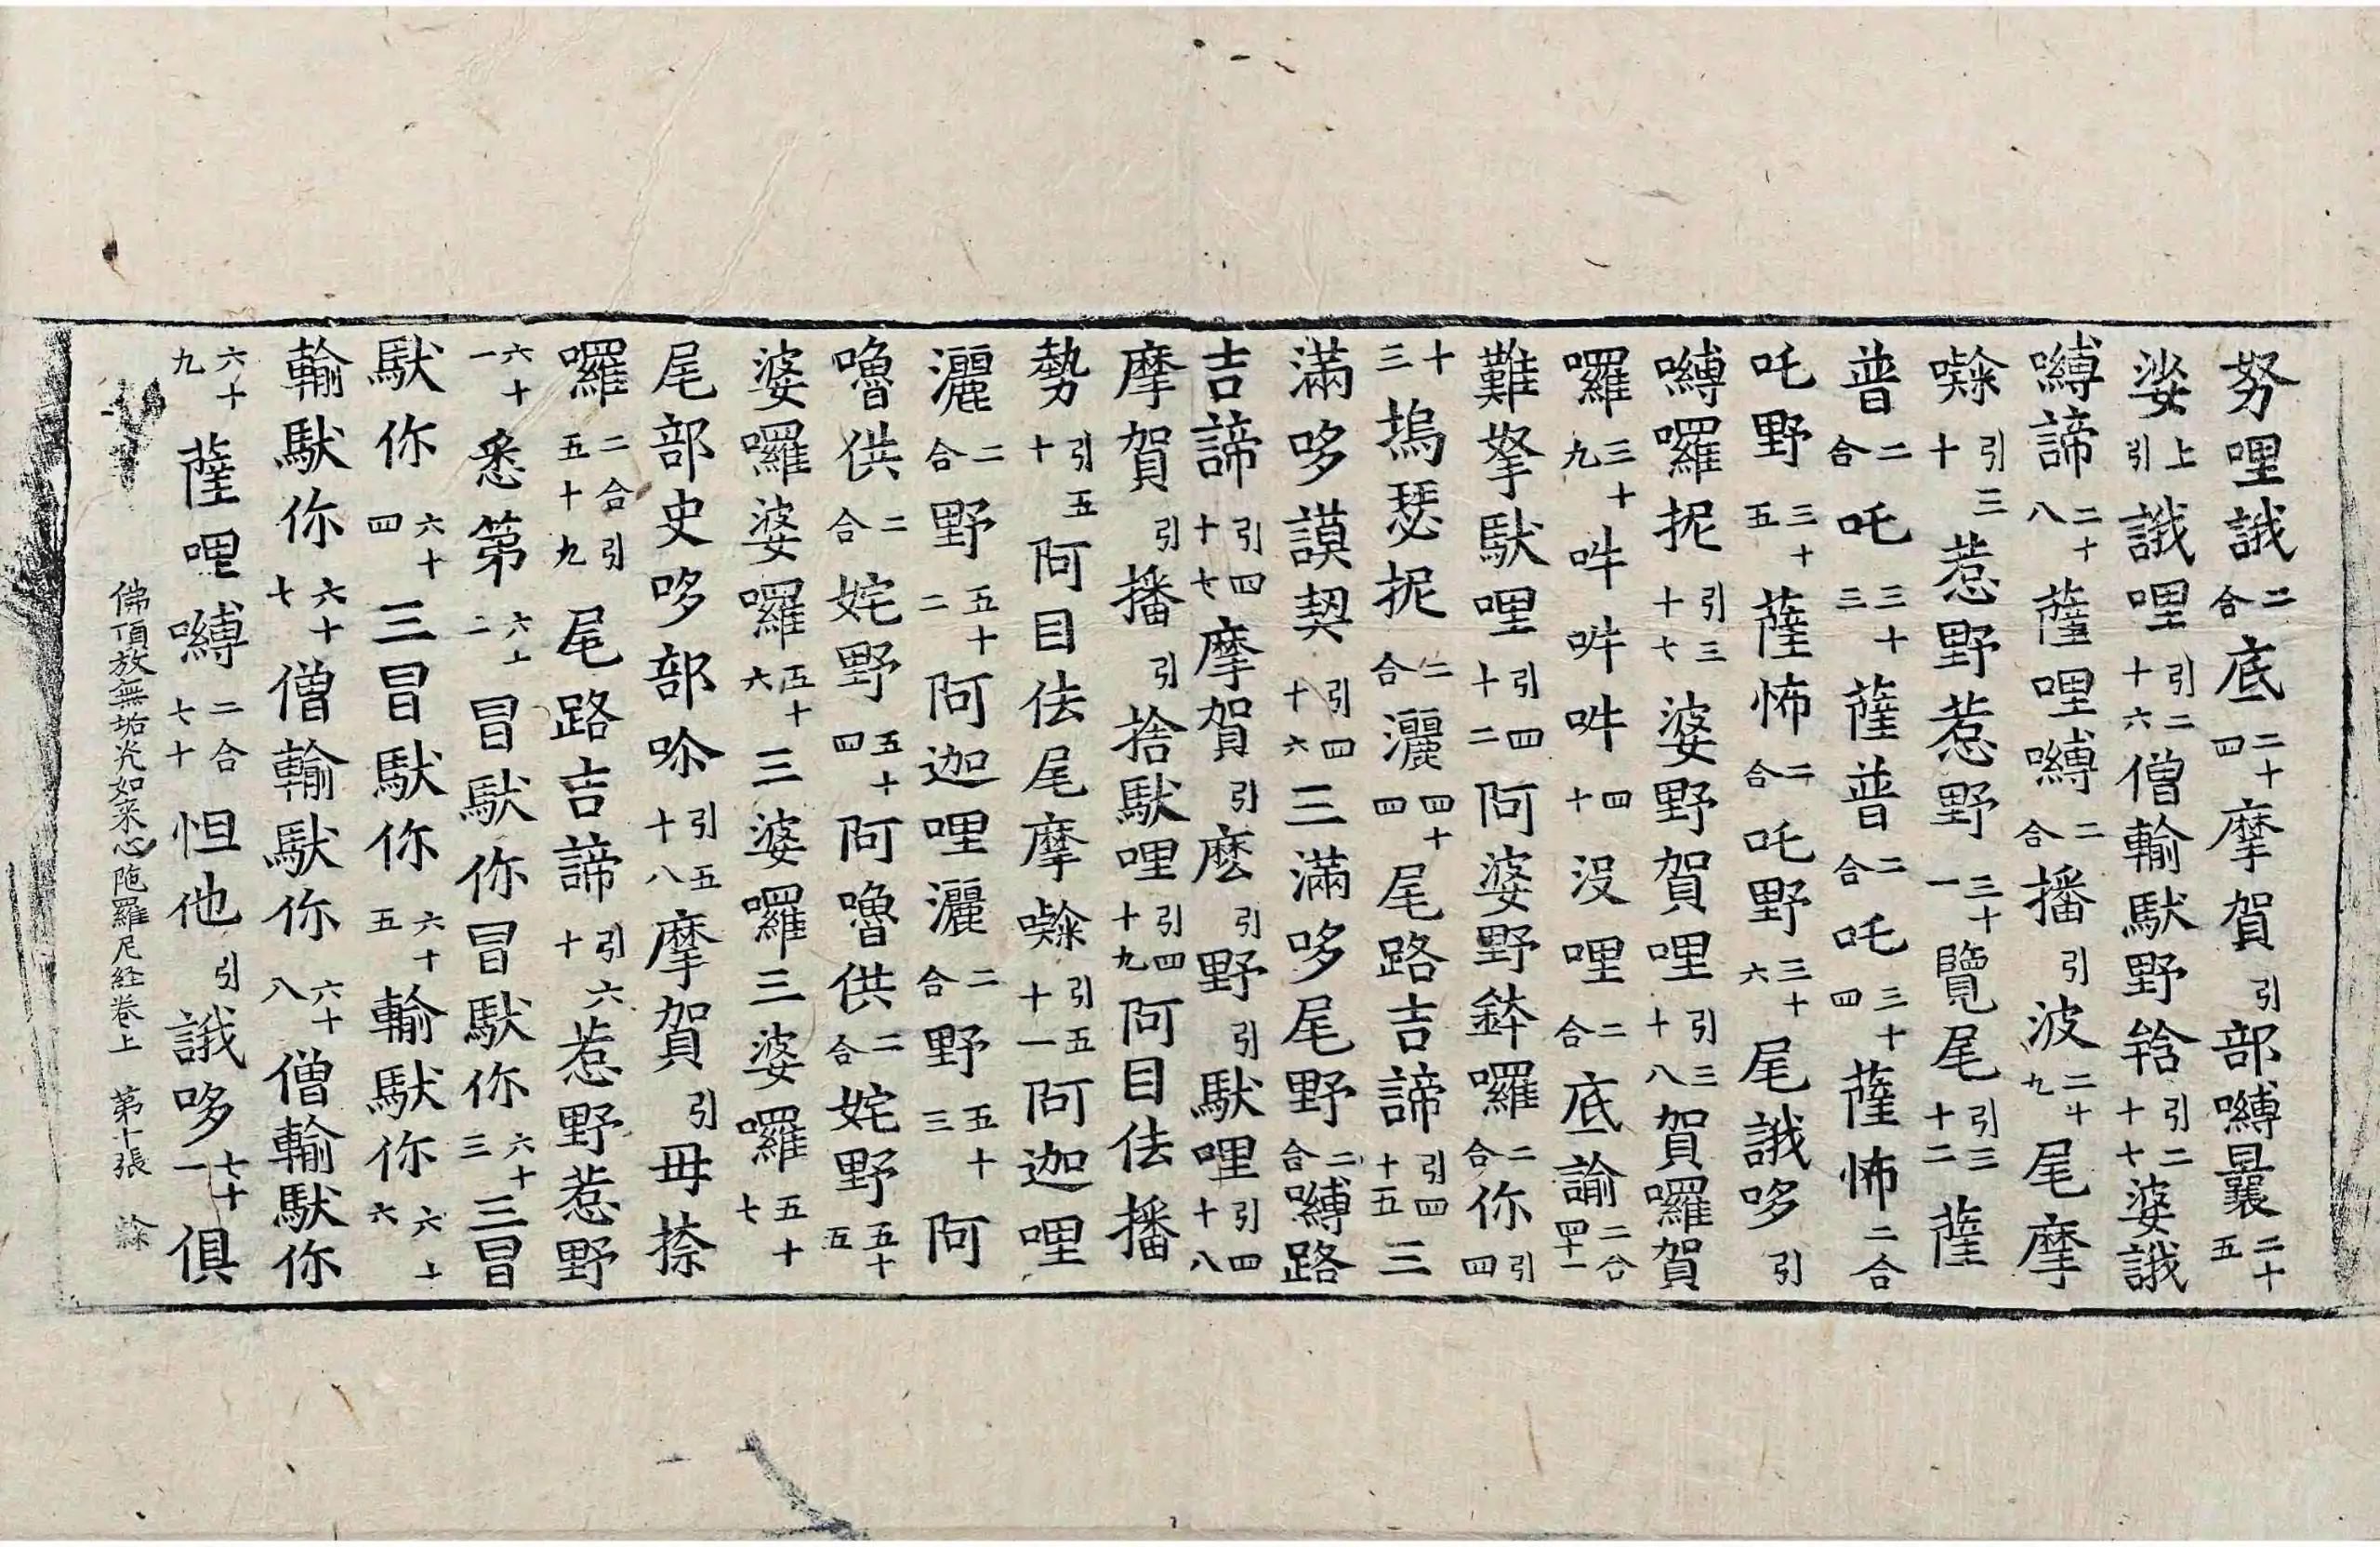 努哩誐二合底二十四摩賀引部嚩曩二十五
娑上引誐哩引二十六僧輸馱野䤈引二十七娑誐
嚩諦二十八薩哩嚩二合播引波二十九尾摩
㘑引三十惹野惹野三十一覽尾引三十二薩
普二合吒三十三薩普二合吒三十四薩怖二合
吒野三十五薩怖二合吒野三十六尾誐哆引
嚩囉抳引三十七婆野賀哩引三十八賀囉賀
囉三十九吽吽吽四十沒哩二合底諭二合四十一
難拏馱哩引四十二阿婆野鉢囉二合你引四
十三塢瑟抳二合灑四十四尾路吉諦引四十五三
滿哆謨契引四十六三滿哆尾野二合嚩路
吉諦引四十七摩賀引麽引野引馱哩引四十八
摩賀引播引捨馱哩引四十九阿目佉播
勢引五十阿目佉尾摩㘑引五十一阿迦哩
灑二合野五十二阿迦哩灑二合野五十三阿
嚕供二合姹野五十四阿嚕供二合姹野五十五
婆囉婆囉五十六三婆囉三婆囉五十七
尾部史哆部吤引五十八摩賀引毋捺
囉二合引五十九尾路吉諦引六十惹野惹野
六十一悉第六十二冒馱你冒馱你六十三三冒
馱你六十四三冒馱你六十五輸馱你六十六
輸馱你六十七僧輸馱你六十八僧輸馱你
六十九薩哩嚩二合七十怛他引誐哆七十一俱
佛頂放無垢光如来心陁羅尼経卷上 第十張